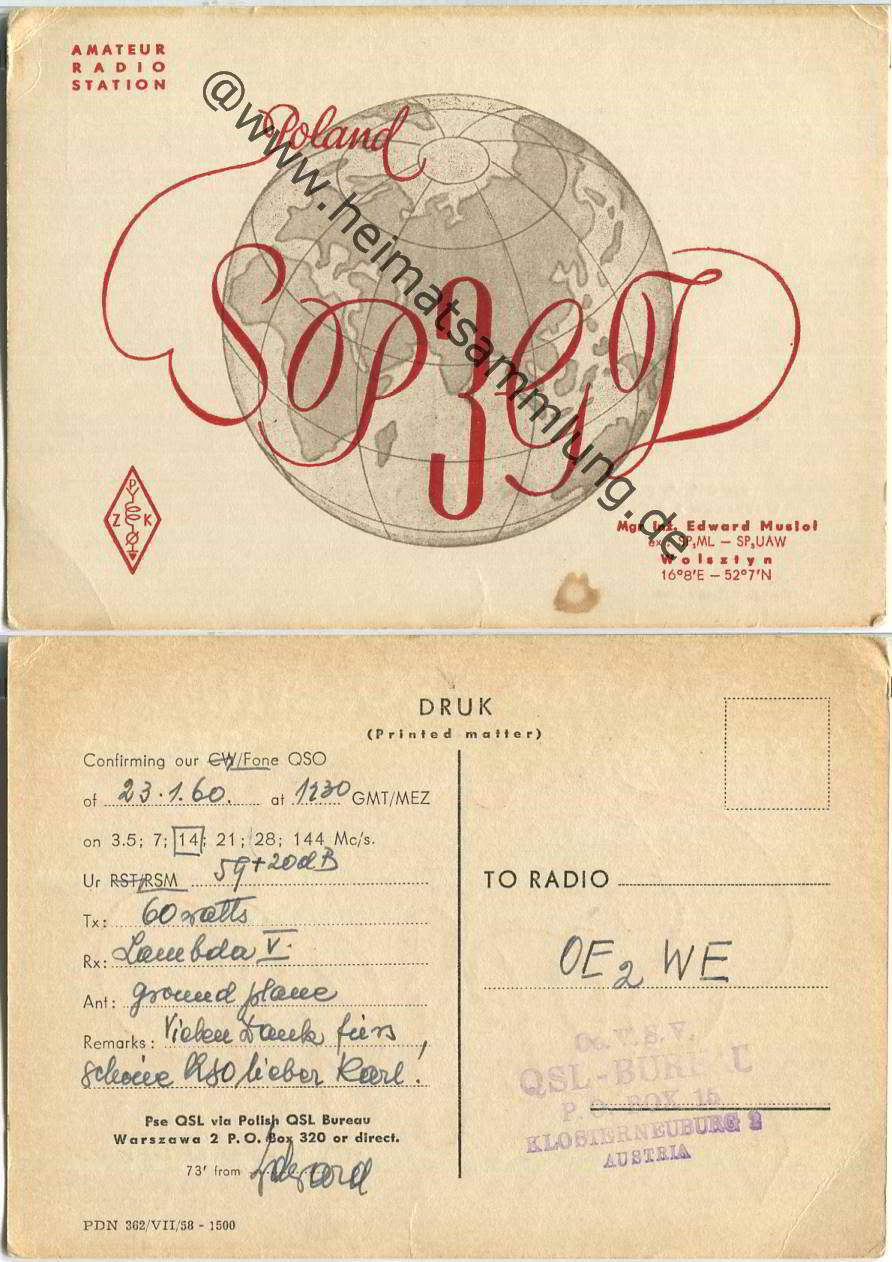 AMATEUR
RADIO
STATION
Poland
@www.heimatsammlung.de
SP3GT
P
Z K
Mgr Inż. Edward Musioł
ex: SP3ML — SP3UAW
Wolsztyn
16°8'E — 52°7'N
DRUK
(Printed matter)
Confirming our CW/Fone QSO
of 23.1.60. at 1230 GMT/MEZ
on 3.5; 7; 14; 21; 28; 144 Mc/s.
Ur RST/RSM 59+20dB
Tx: 60 watts
Rx: Lambda V.
Ant: ground plane
Remarks: Vielen Dank fürs
schöne QSO, lieber Karl!
Pse QSL via Polish QSL Bureau
Warszawa 2 P. O. Box 320 or direct.
73' from Edward
PDN 362/VII/58 - 1500
TO RADIO
OE2WE
Oe. V. S. V.
QSL-BUREAU
P. O. BOX 15
KLOSTERNEUBURG 2
AUSTRIA